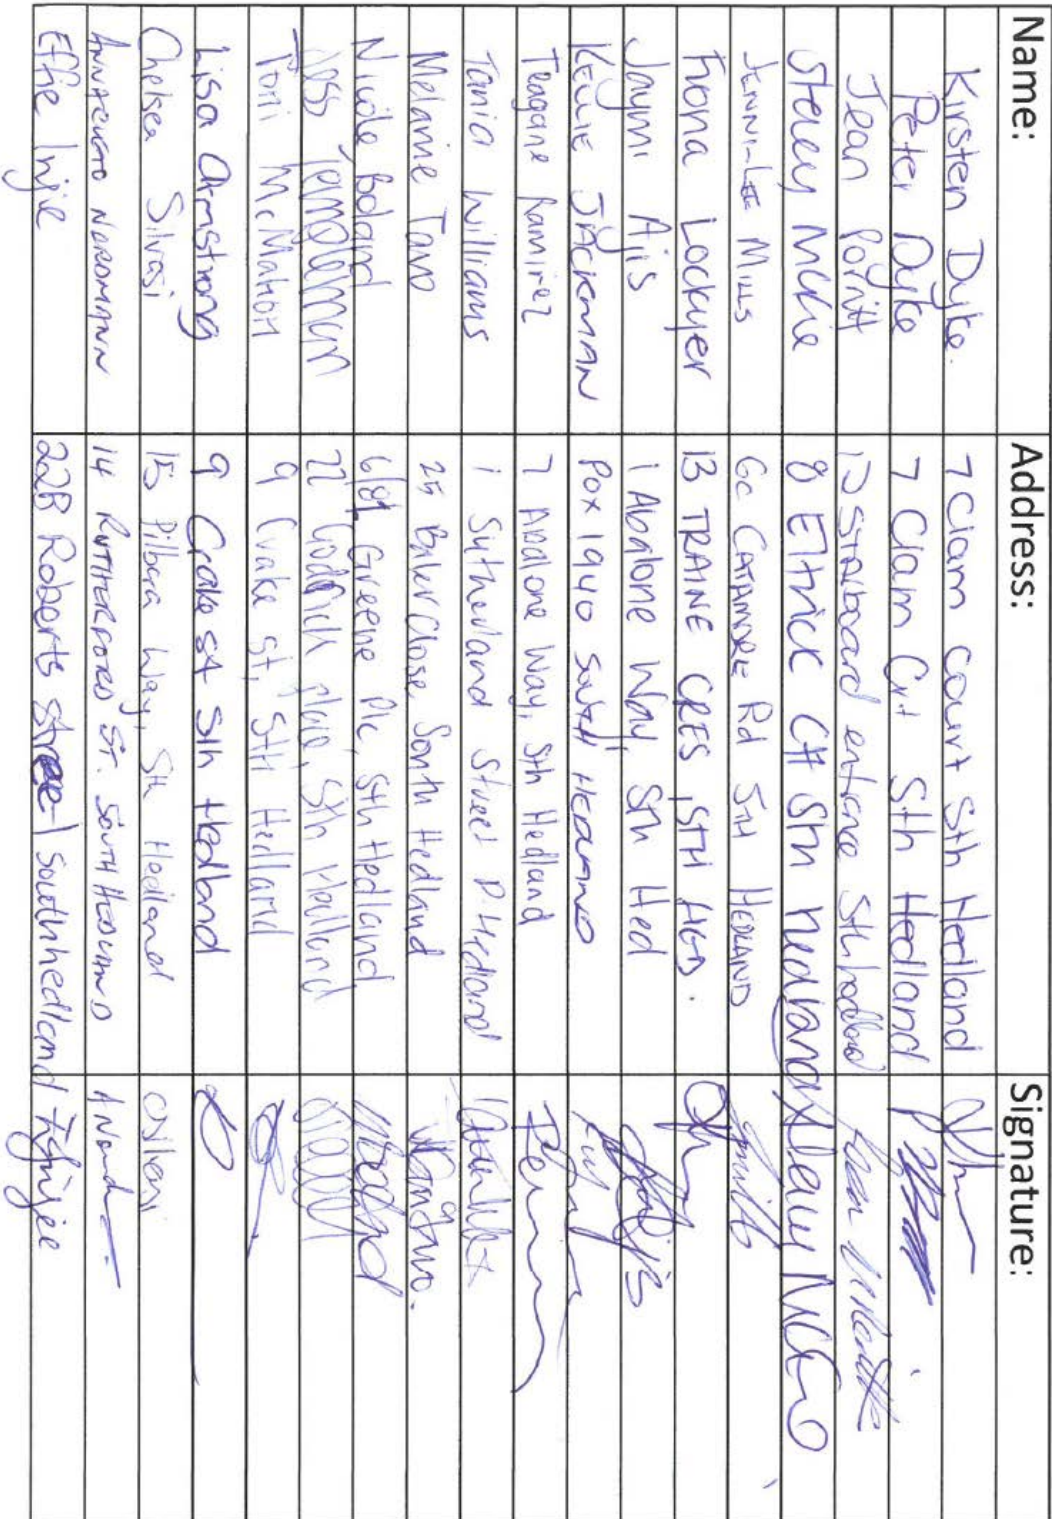 Name: Address: Signature:
Kirsten Dyke. 7 Clam Court Sth Hedland
Peter Dyke 7 Clam Crt Sth Hedland
Jean 17 Starboard entrance Sth hedland
Stacey McKie 8 Ettrick Crt Sth hedland
JENNI-LEE MILLS 6C CATAMORE Rd STH HEDLAND
Fiona Lockyer 13 TRAINE CRES, STH HED.
Jaymi Ajis 1 Abalone Way, Sth Hed
KELLIE JACKMAN POX 1940 SOUTH HEDLAND
Teagane Ramirez 7 Abalone Way, Sth Hedland
Tania Williams 1 Sutherland Street P. Hedland
Melanie Tavo 25 Close, South Hedland
Nicole Boland 6/81 Greene Plc, Sth Hedland
Jess Templeman 22 Place, Sth Hedland
Tori McMahon 9 Crake St, STH Hedland
Lisa Armstrong 9 Crake St Sth Hedland
Chelsea Silvasi 15 Pilbara Way, Sth Hedland
NORDMANN 14 RUTHERFORD ST. SOUTH HEDLAND
Effie Injie 22B Roberts Street Southhedland